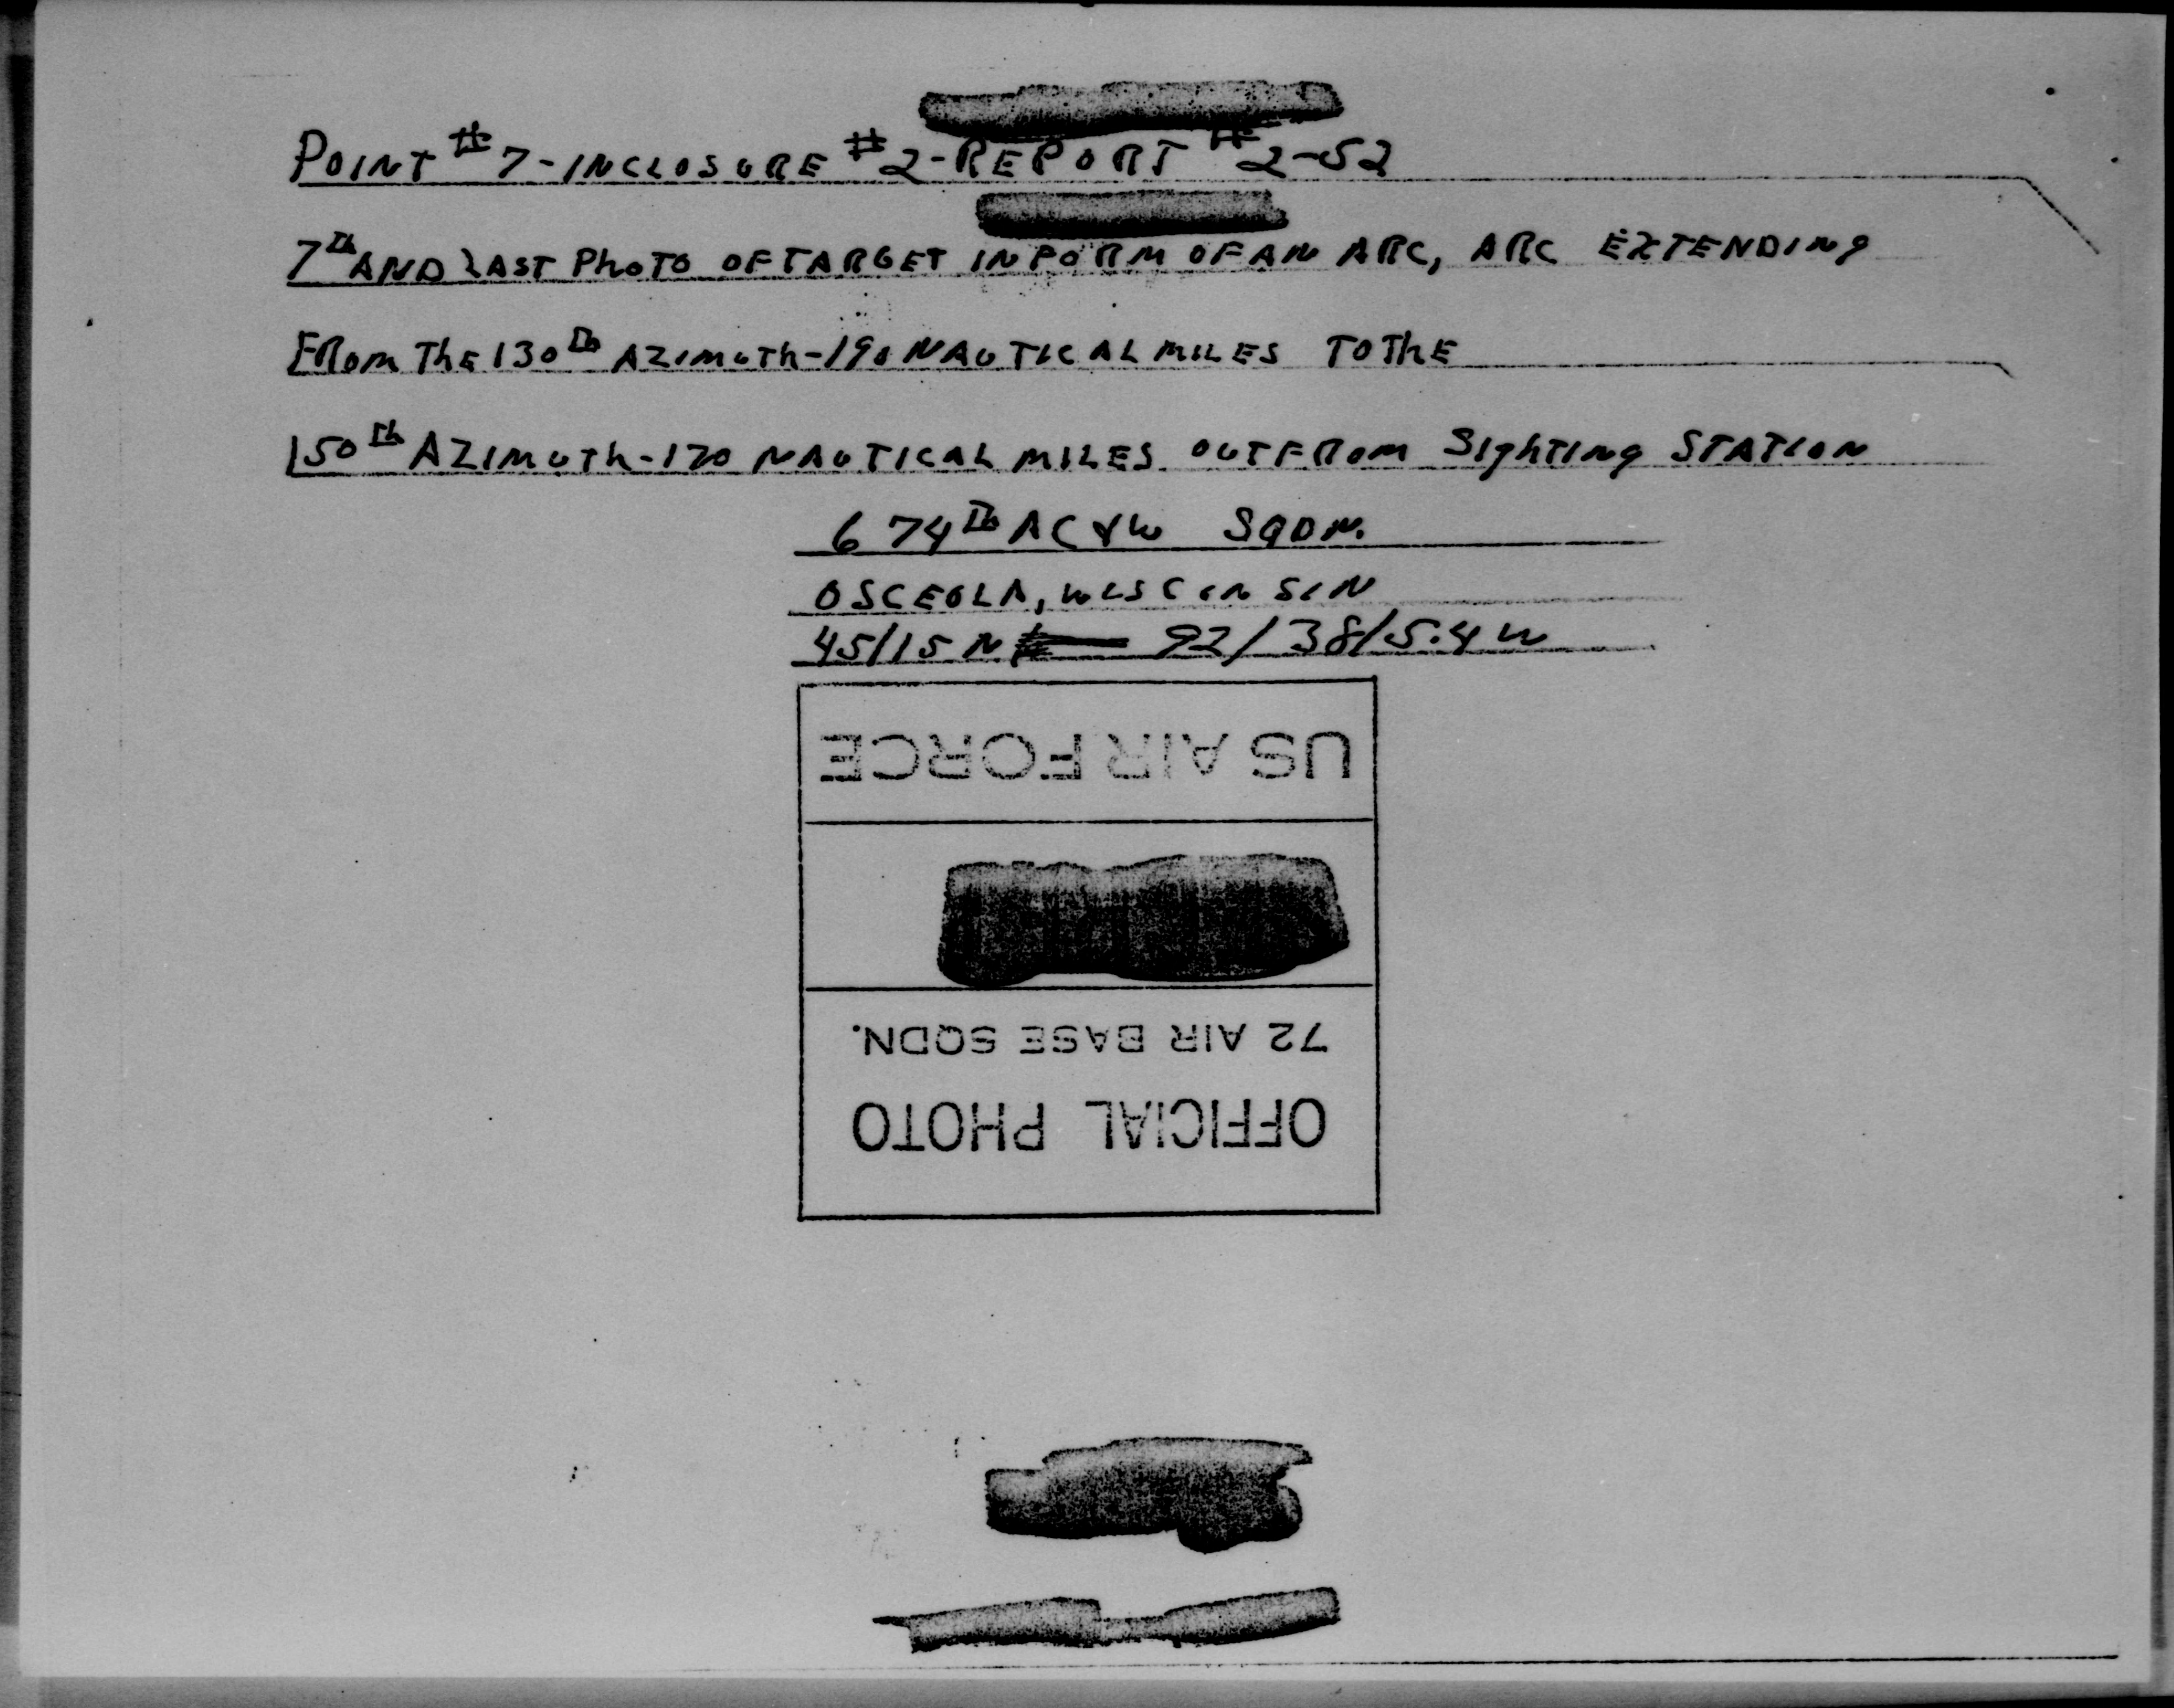 POINT #7-INCLOSURE #2-REPORT #2-52
7th AND LAST PHOTO OF TARGET IN FORM OF AN ARC, ARC EXTENDING
FROM THE 130th AZIMUTH-190 NAUTICAL MILES TO THE
150th AZIMUTH-170 NAUTICAL MILES OUT FROM SIGHTING STATION
674th AC&W SQDN.
OSCEOLA, WISCONSIN
45/15 N 92/38/5.4 W
OFFICIAL PHOTO
72 AIR BASE SQDN.
US AIR FORCE